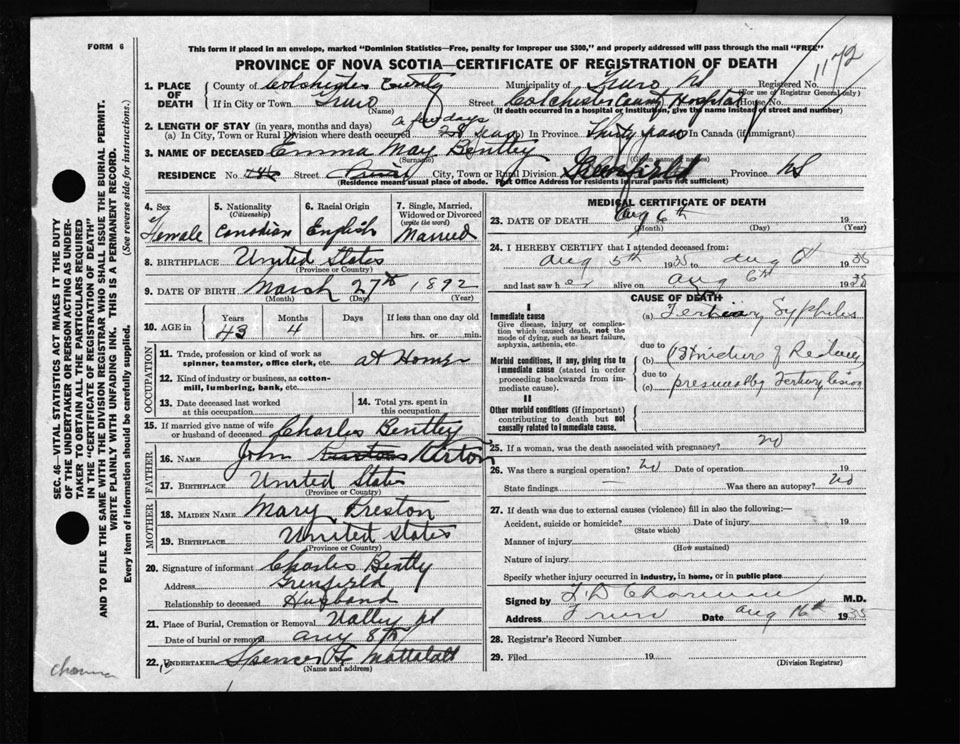 FORM 6
This form if placed in an envelope, marked "Dominion Statistics—Free, penalty for improper use $300," and properly addressed will pass through the mail "FREE"
PROVINCE OF NOVA SCOTIA—CERTIFICATE OF REGISTRATION OF DEATH
1172
1. PLACE OF DEATH
County of Colchester County Municipality of Truro NS Registered No.
(For use of Registrar General only)
If in City or Town Truro Street Colchester County Hospital House No.
(Name) (If death occurred in a hospital or institution, give the name instead of street and number)
2. LENGTH OF STAY (in years, months and days)
(a) In City, Town or Rural Division where death occurred a few days In Province In Canada (if immigrant)
3. NAME OF DECEASED Emma May Bentley
(Surname) (Given name or names)
RESIDENCE No. Street City, Town or Rural Division Greenfield Province NS
(Residence means usual place of abode. Post Office Address for residents in rural parts not sufficient)
4. Sex Female
5. Nationality (Citizenship) Canadian
6. Racial Origin English
7. Single, Married, Widowed or Divorced (write the word) Married
8. BIRTHPLACE United States
(Province or Country)
9. DATE OF BIRTH March 27th 1892
(Month) (Day) (Year)
10. AGE in Years 43 Months 4 Days If less than one day old hrs. or min.
OCCUPATION
11. Trade, profession or kind of work as spinner, teamster, office clerk, etc. at Home
12. Kind of industry or business, as cotton-mill, lumbering, bank, etc.
13. Date deceased last worked at this occupation
14. Total yrs. spent in this occupation
15. If married give name of wife or husband of deceased Charles Bentley
FATHER
16. Name John
17. Birthplace United States
(Province or Country)
MOTHER
18. Maiden Name Mary Preston
19. Birthplace United States
(Province or Country)
20. Signature of informant Charles Bently
Address Greenfield
Relationship to deceased Husband
21. Place of Burial, Cremation or Removal Valley NS
Date of burial or removal Aug 8th
22. Undertaker Spencer
(Name and address)
MEDICAL CERTIFICATE OF DEATH
23. DATE OF DEATH Aug 6th 19
(Month) (Day) (Year)
24. I HEREBY CERTIFY that I attended deceased from:
Aug 5th 1935 to Aug 6th 1935
and last saw her alive on Aug 6th 1935
CAUSE OF DEATH
I
Immediate cause
Give disease, injury or complication which caused death, not the mode of dying, such as heart failure, asphyxia, asthenia, etc.
(a) Tertiary Syphilis
Morbid conditions, if any, giving rise to immediate cause (stated in order proceeding backwards from immediate cause).
due to
(b)
due to
(c) presumably Tertiary lesion
II
Other morbid conditions (if important) contributing to death but not causally related to immediate cause.
25. If a woman, was the death associated with pregnancy? no
26. Was there a surgical operation? no Date of operation 19
State findings — Was there an autopsy? no
27. If death was due to external causes (violence) fill in also the following:—
Accident, suicide or homicide? Date of injury 19
(State which)
Manner of injury
(How sustained)
Nature of injury
Specify whether injury occurred in industry, in home, or in public place
Signed by M.D.
Address Truro Date Aug 16th 1935
28. Registrar's Record Number
29. Filed 19
(Division Registrar)
SEC. 46—VITAL STATISTICS ACT MAKES IT THE DUTY
OF THE UNDERTAKER OR PERSON ACTING AS UNDER-
TAKER TO OBTAIN ALL THE PARTICULARS REQUIRED
IN THE "CERTIFICATE OF REGISTRATION OF DEATH"
AND TO FILE THE SAME WITH THE DIVISION REGISTRAR WHO SHALL ISSUE THE BURIAL PERMIT.
WRITE PLAINLY WITH UNFADING INK. THIS IS A PERMANENT RECORD.
Every item of information should be carefully supplied. (See reverse side for instructions.)